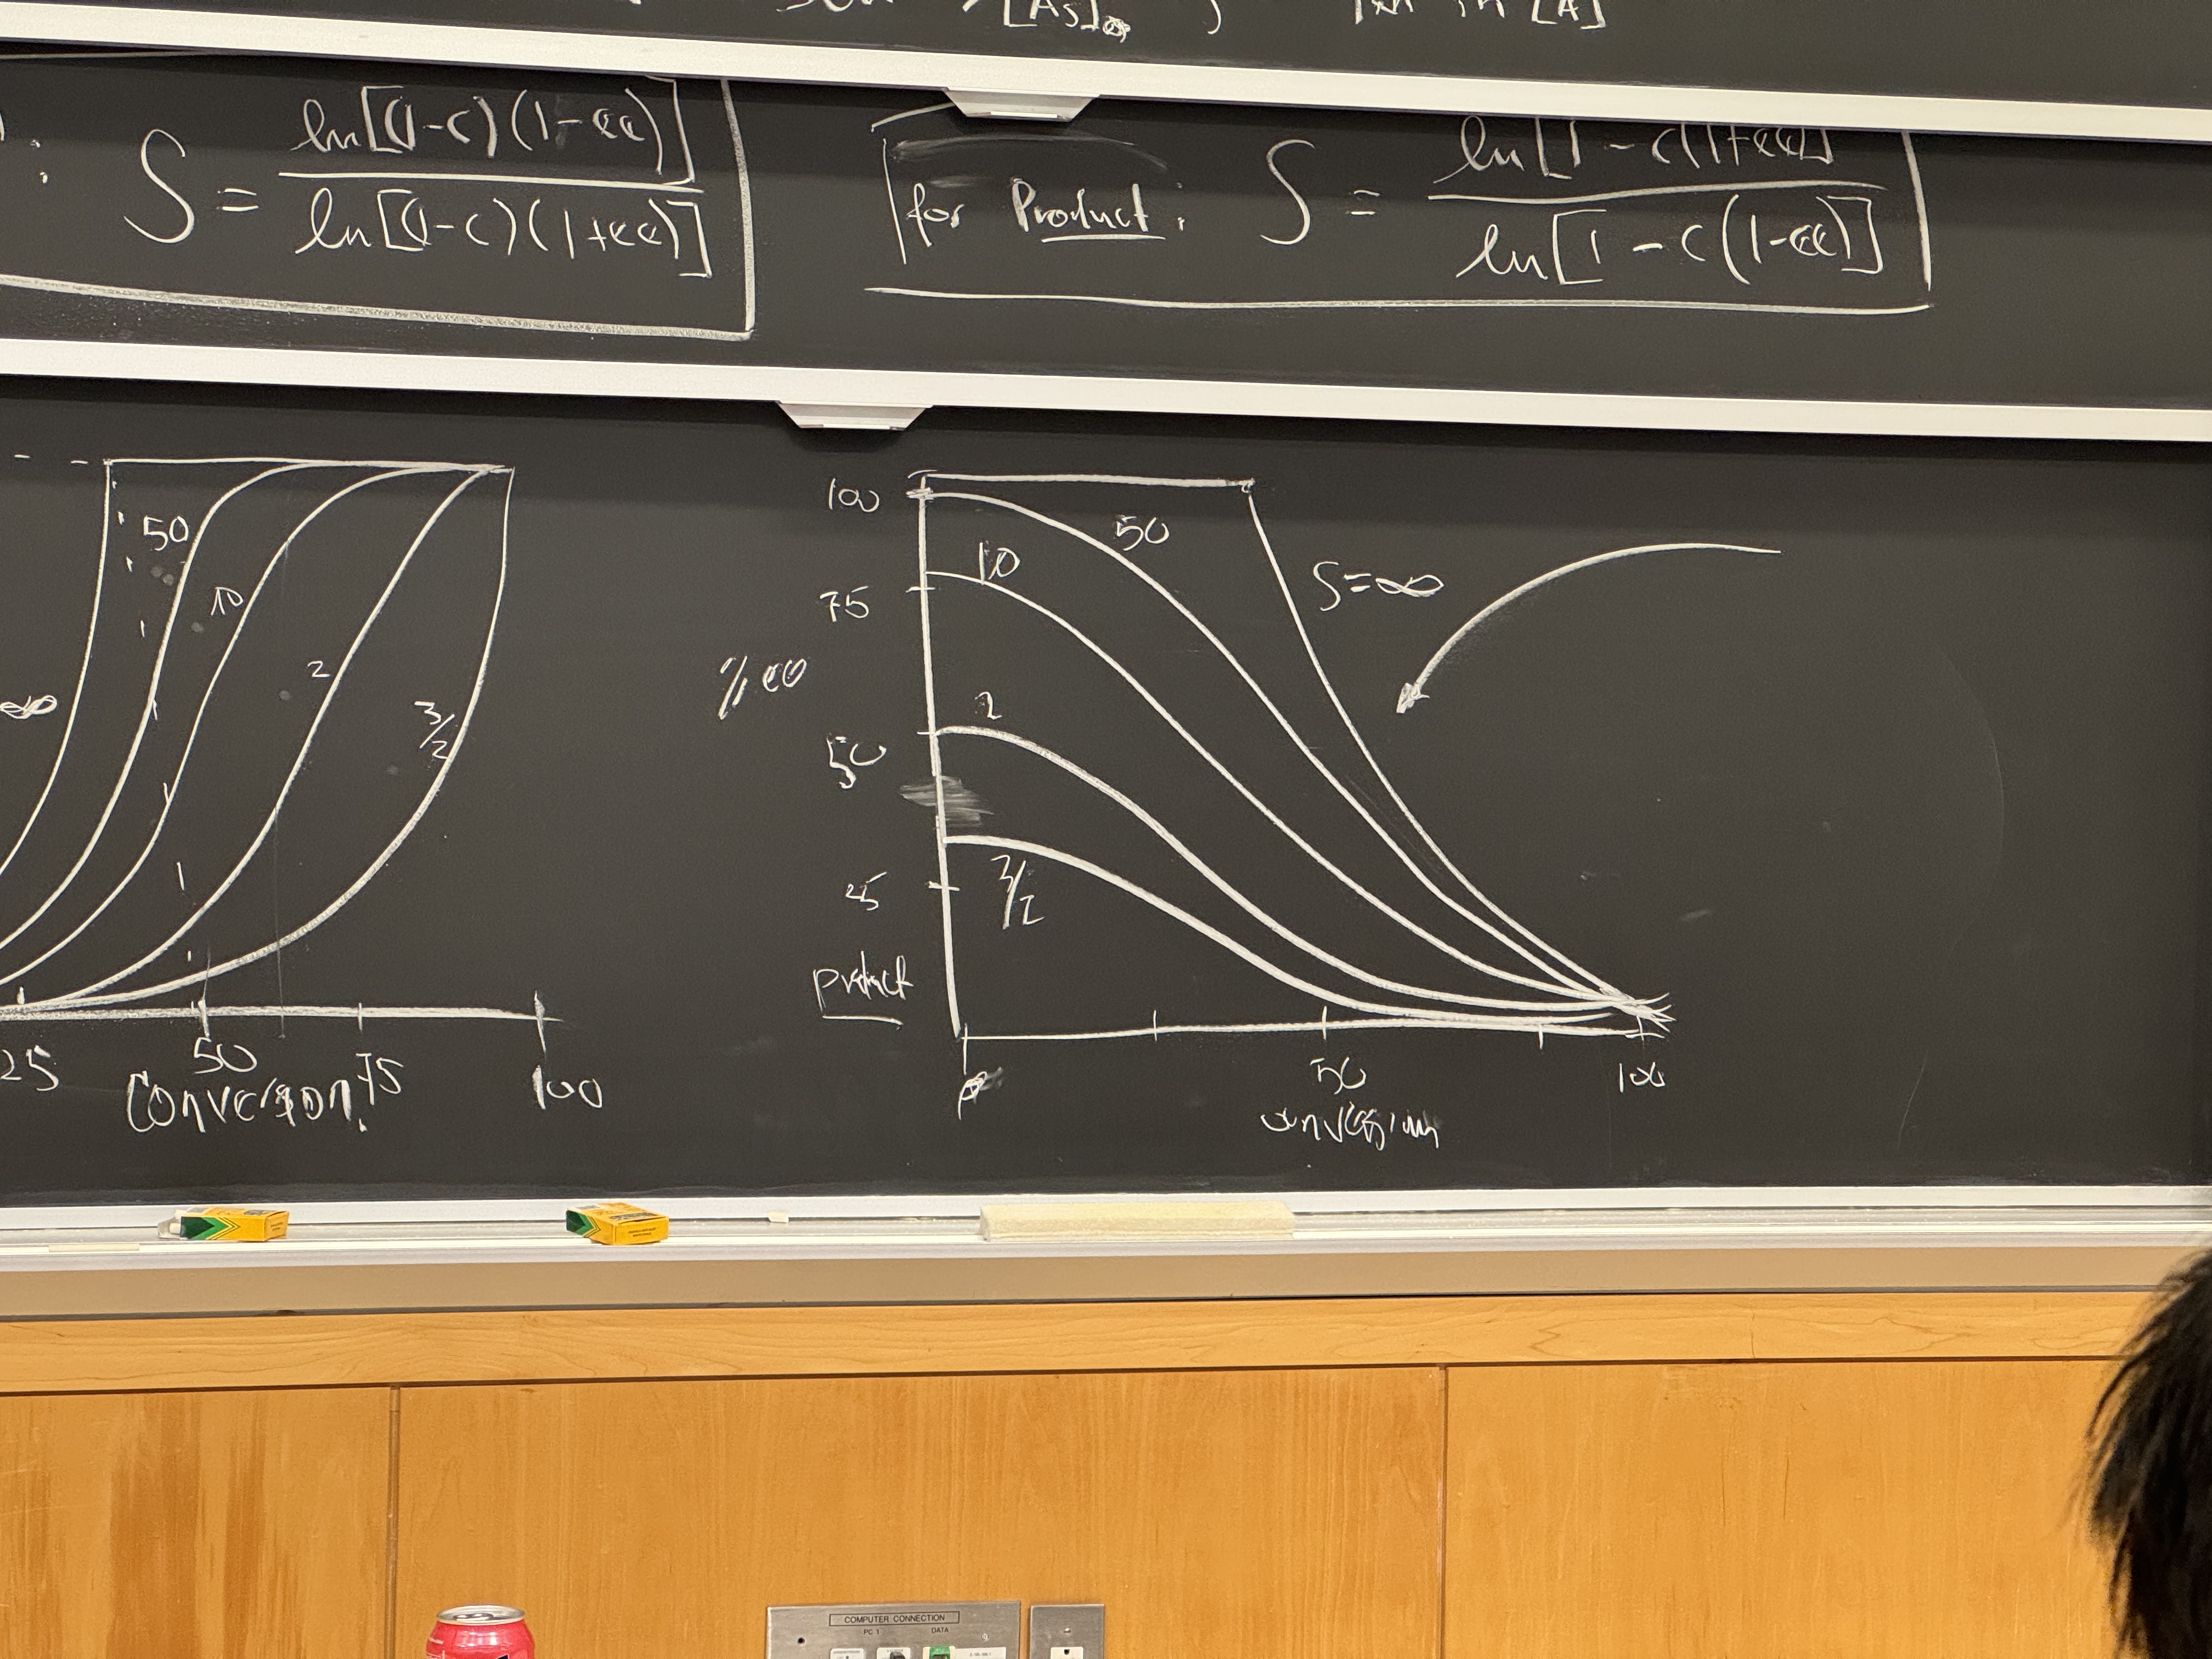 [As]₀
in [A]
: S = ln[(1-c)(1-ee)] / ln[(1-c)(1+ee)]
for Product: S = ln[1-c(1+ee)] / ln[1-c(1-ee)]
50
10
2
3/2
∞
25
50
75
100
Conversion
100
75
50
25
% ee
product
50
10
2
3/2
S=∞
50
100
conversion
COMPUTER CONNECTION
PC 1
DATA